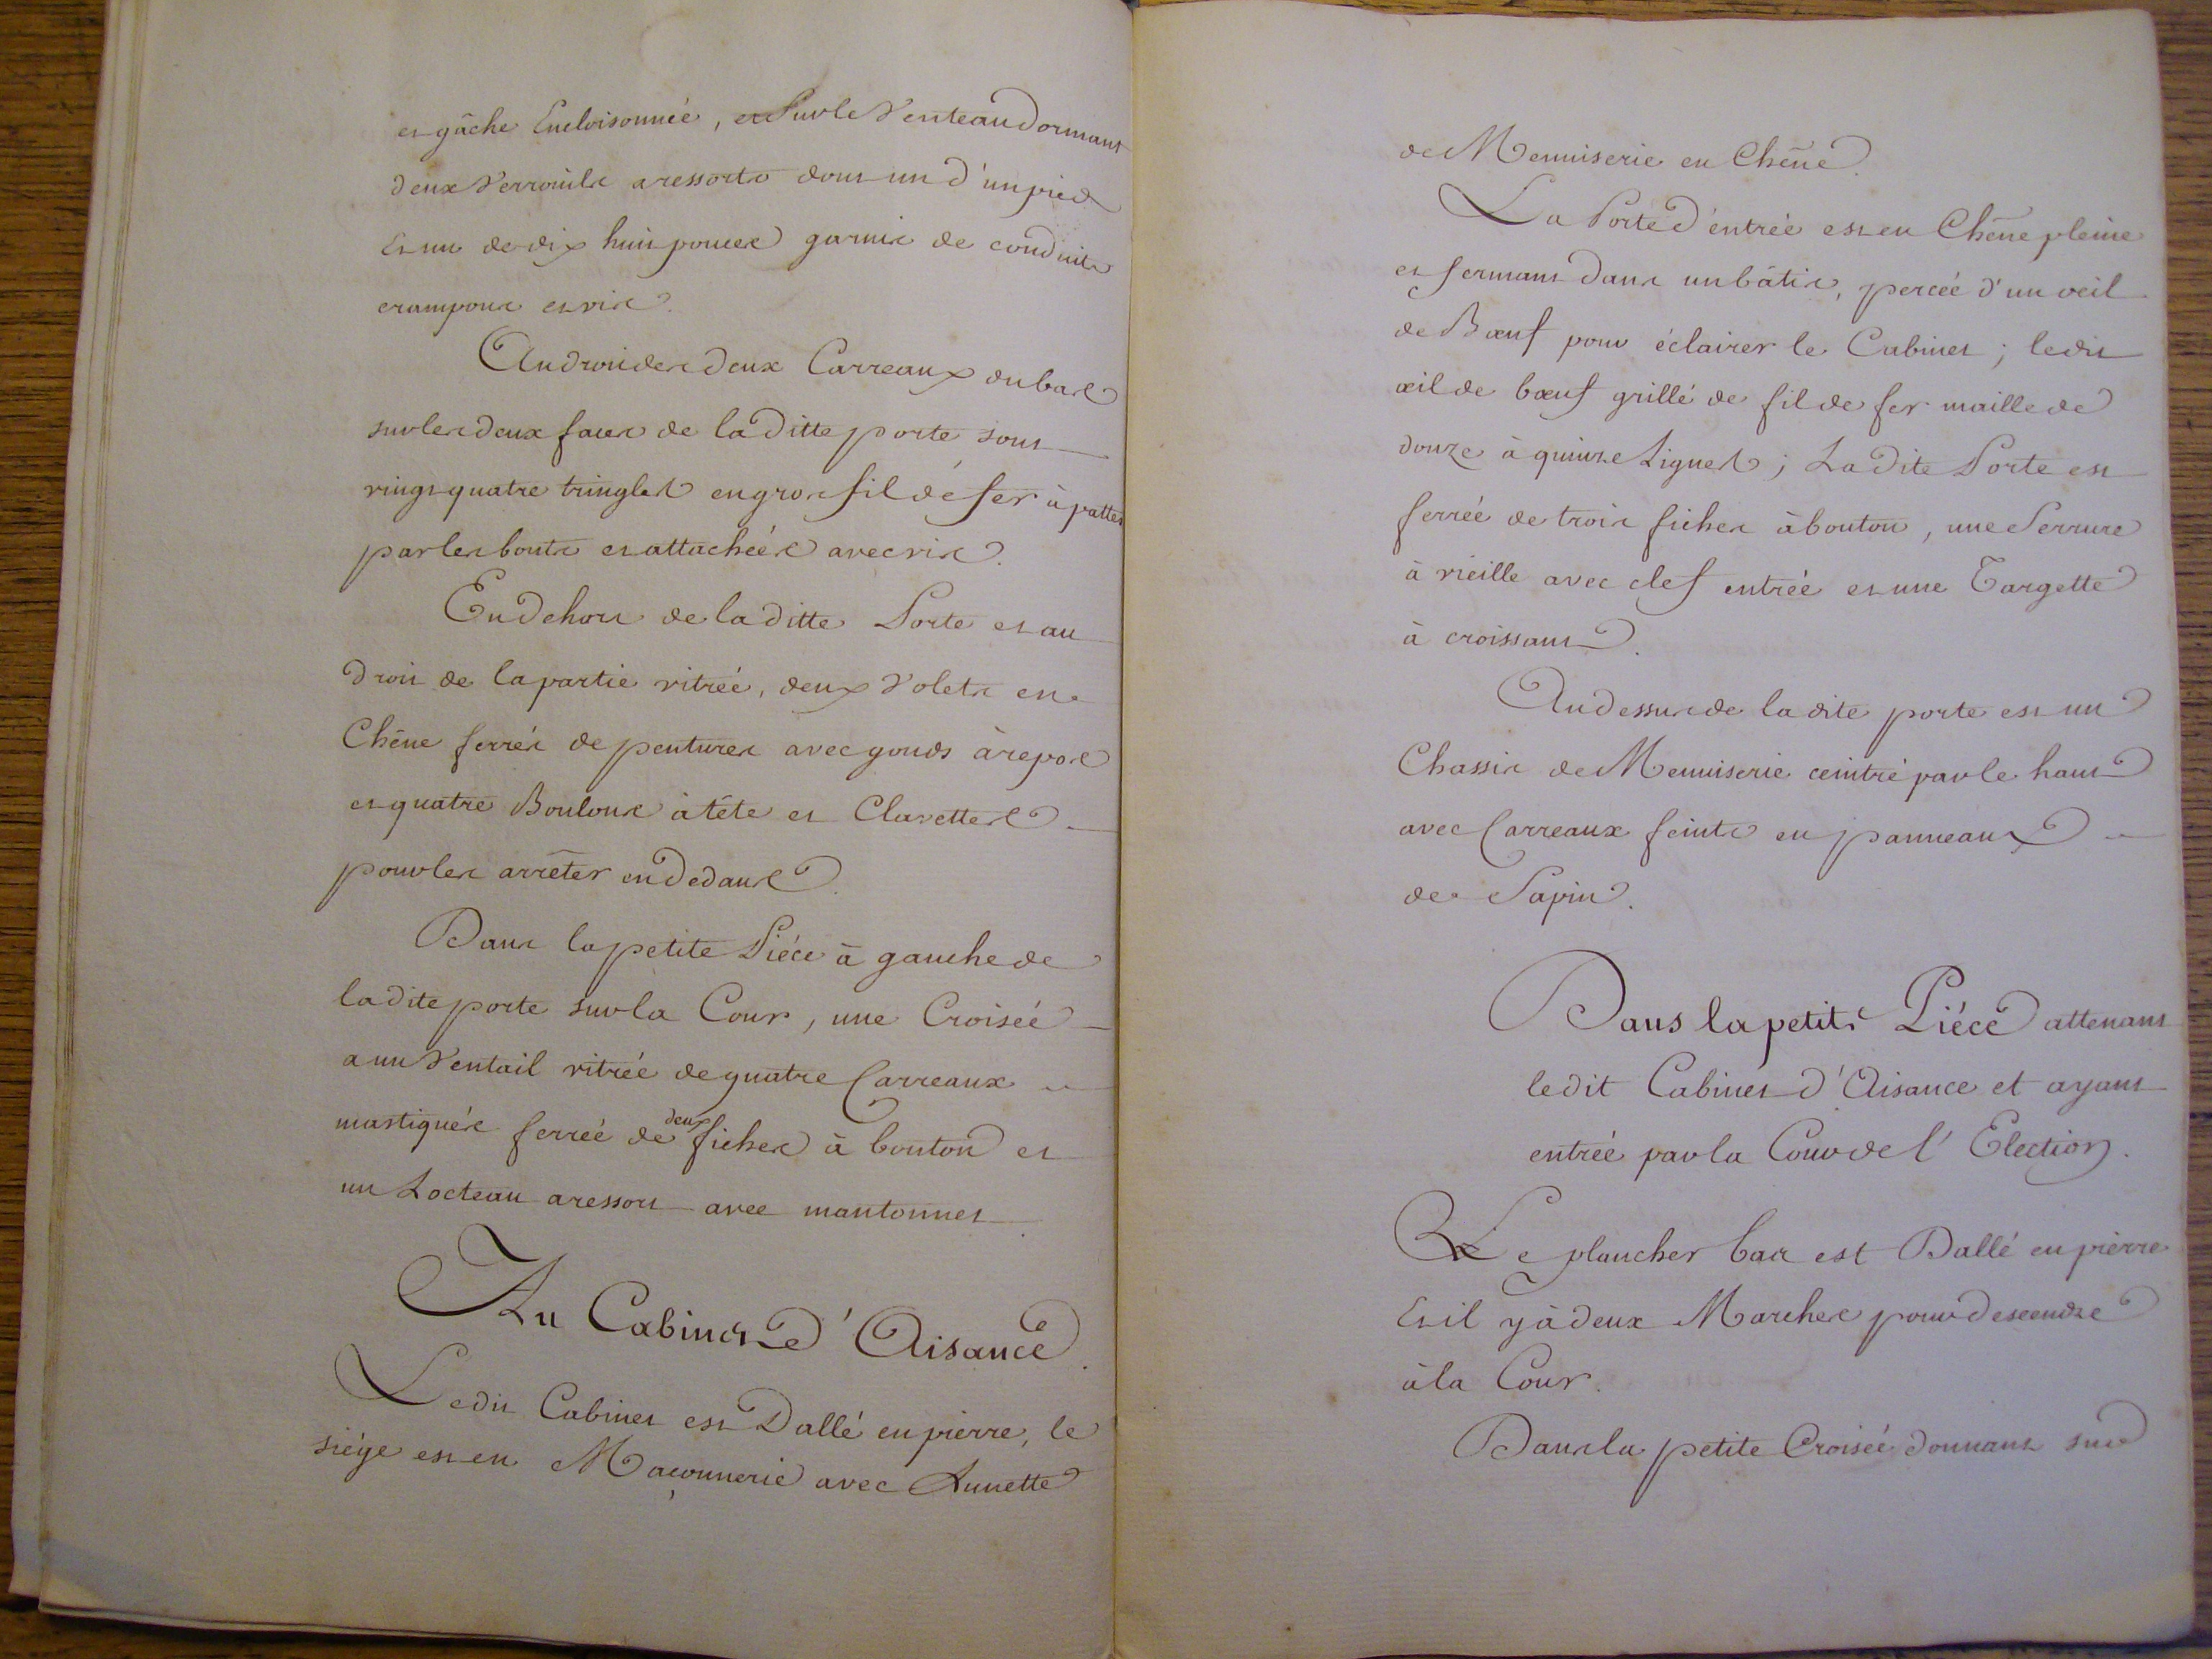 et gâche Encloisonnée, et Sur le Venteau Dormant
deux Verrouils a ressorts dont un d'un pied
Et un de dix huit pouces garnis de conduits
crampons et vis.
Au droit des deux Carreaux du bas
sur les deux faces de la ditte porte sont
vingt quatre tringles en gros fil de fer à pattes
par les bouts et attachées avec vis.
En dehors de la ditte Porte et au
droit de la partie vitrée, deux Volets en
Chêne ferrés de pentures avec gonds à repos
et quatre Boulons à tête et Clavettes
pour les arrêter en dedans.
Dans la petite Piéce à gauche de
la dite porte sur la Cour, une Croisée
a un Ventail vitrée de quatre Carreaux
mastiqués ferrée de deux fiches à bouton et
un Locteau a ressort avec mantonnet.
Au Cabinet d'Aisance.
Ledit Cabinet est Dallé en pierre, le
siége est en Maçonnerie avec Lunette
de Menuiserie en Chêne.
La Porte d'entrée est en Chêne pleine
et fermant dans un bâtis, percée d'un oeil
de Boeuf pour éclairer le Cabinet ; ledit
oeil de boeuf grillé de fil de fer maille de
douze à quinze Lignes ; La dite Porte est
ferrée de trois fiches à bouton, une Serrure
à vieille avec clef entrée et une Targette
à croissant.
Au dessus de la dite porte est un
Chassis de Menuiserie ceintré par le haut
avec Carreaux feints en panneaux
de Sapin.
Dans la petite Piéce attenant
ledit Cabinet d'Aisance et ayant
entrée par la Cour de l'Election.
Le plancher bas est Dallé en pierre
Et il y à deux Marches pour descendre
à la Cour.
Dans la petite Croisée donnant sur